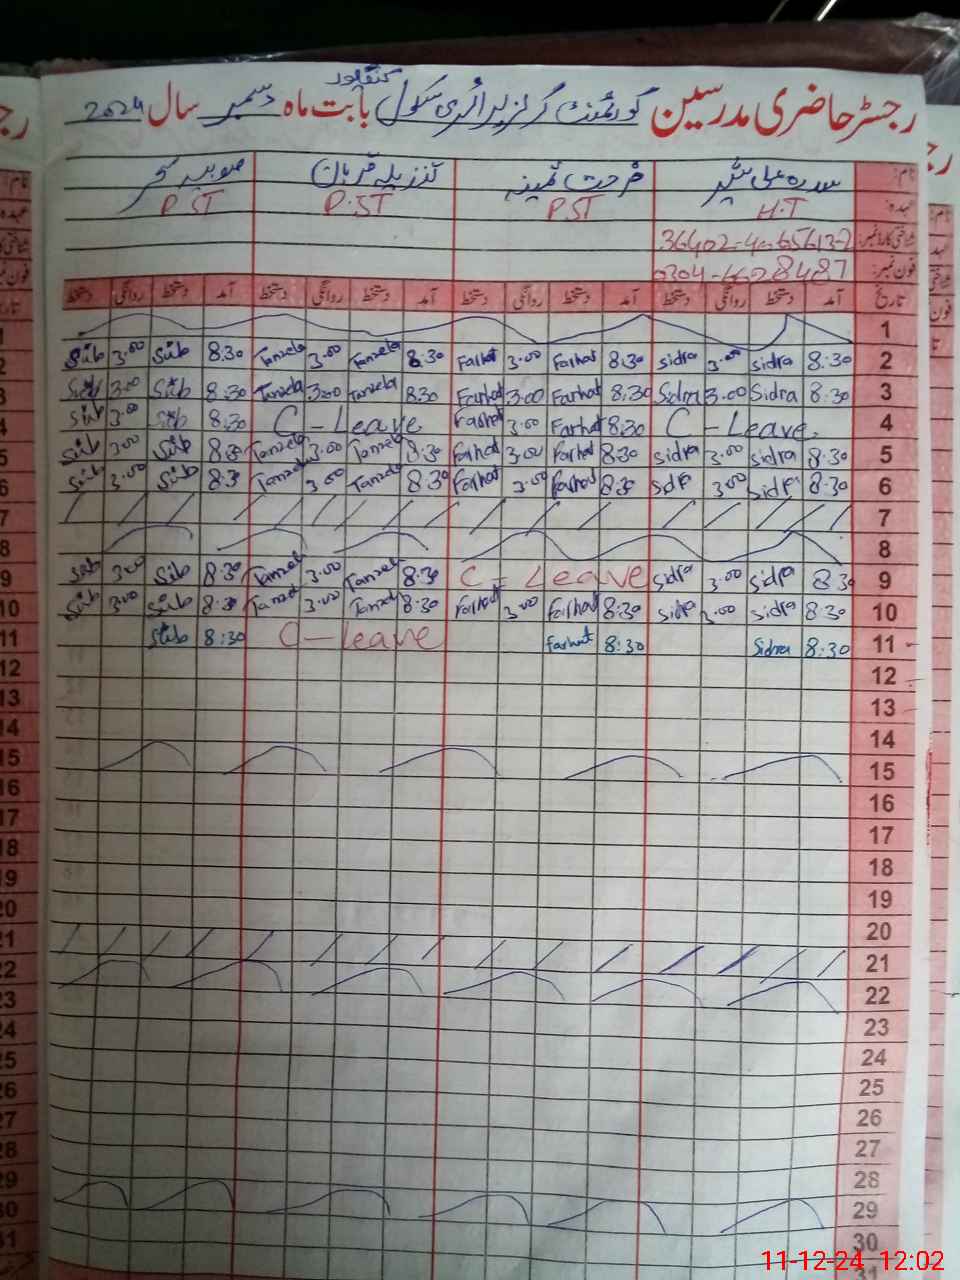 کنگنپور
رجسٹر حاضری مدرسین گورنمنٹ گرلز پرائمری سکول بابت ماہ دسمبر سال 2024
نام: سدرہ علی فرحت ثمینہ تنزیلہ قربان صوبیہ سحر
عہدہ: H.T P.ST P.ST P.ST
شناختی کارڈ نمبر:
فون نمبر:
تاریخ آمد دستخط روانگی دستخط آمد دستخط روانگی دستخط آمد دستخط روانگی دستخط آمد دستخط روانگی دستخط
1
Süb 3.00 Süb 8.30 Tanzela 3.00 Tanzela 8.30 Farhat 3.00 Farhat 8:30 Sidra 3.00 Sidra 8:30 2
Süb 3.00 Süb 8:30 Tanzela 3.00 Tanzela 8.30 Farhat 3.00 Farhat 8:30 Sidra 3.00 Sidra 8:30 3
Süb 3.00 Süb 8.30 C-Leave Farhat 3.00 Farhat 8:30 C-Leave. 4
Süb 3.00 Süb 8:30 Tanzela 3.00 Tanzela 8.30 Farhat 3.00 Farhat 8:30 Sidra 3.00 Sidra 8:30 5
Süb 3.00 Süb 8:30 Tanzela 3.00 Tanzela 8.30 Farhat 3.00 Farhat 8:30 Sidra 3.00 Sidra 8:30 6
7
8
Süb 3.00 Süb 8:30 Tanzela 3.00 Tanzela 8:30 C-Leave Sidra 3.00 Sidra 8:30 9
Süb 3.00 Süb 8:30 Tanzela 3.00 Tanzela 8.30 Farhat 3.00 Farhat 8:30 Sidra 3.00 Sidra 8:30 10
Süb 8:30 C-Leave Farhat 8:30 Sidra 8:30 11
12
13
14
15
16
17
18
19
20
21
22
23
24
25
26
27
28
29
30
31
11-12-24 12:02